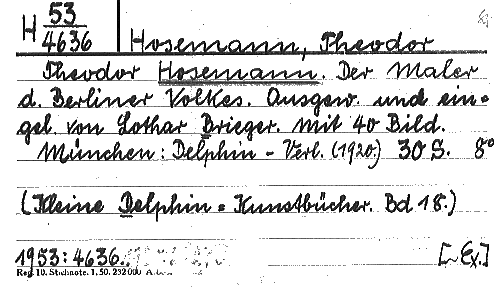 H 53/4636
Hosemann, Theodor
Theodor Hosemann. Der Maler
d. Berliner Volkes. Ausgew. und ein=
gel. von Lothar Brieger. Mit 40 Bild.
München: Delphin-Verl. (1920.) 30 S. 8°
(Kleine Delphin=Kunstbücher. Bd 18.)
1953:4636.
[~Ex.]
Reg. 10. Stichnote. 1. 50. 232000